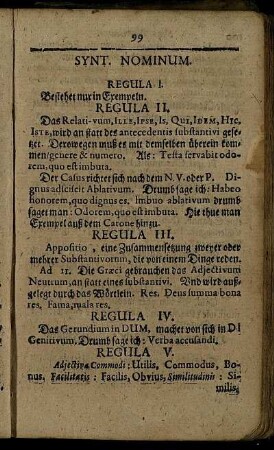 99
SYNT. NOMINUM.
REGULA I.
Bestehet nur in Exempeln.
REGULA II.
Das Relati-vum, ILLE, IPSE, IS, QUI, IDEM, HIC,
ISTE, wird an statt des antecedentis substantivi gese-
tzet. Derowegen muß es mit demselben überein kom-
men/ genere & numero. Als: Testa servabit odo-
rem, quo est imbuta.
Der Casus richtet sich nach dem N. V. oder P. Di-
gnus adsciscit Ablativum. Drumb sage ich: Habeo
honorem, quo dignus es. Imbuo ablativum drumb
saget man: Odorem, quo est imbuta. Hie thue man
Exempel auß dem Catone hinzu.
REGULA III.
Appositio, eine Zusammensetzung zweyer oder
mehrer Substantivorum, die von einem Dinge reden.
Ad II. Die Græci gebrauchen das Adjectivum
Neutrum, an statt eines substantivi. Und wird auß-
gelegt durch das Wörtlein. Res. Deus summa bona
res, Fama, mala res.
REGULA IV.
Das Gerundium in DUM, machet von sich in DI
Genitivum. Drumb sage ich: Verba accusandi.
REGULA V.
Adjectiva Commodi: Utilis, Commodus, Bo-
nus, Facilitatis: Facilis, Obvius, Similitudinis: Si-
milis,